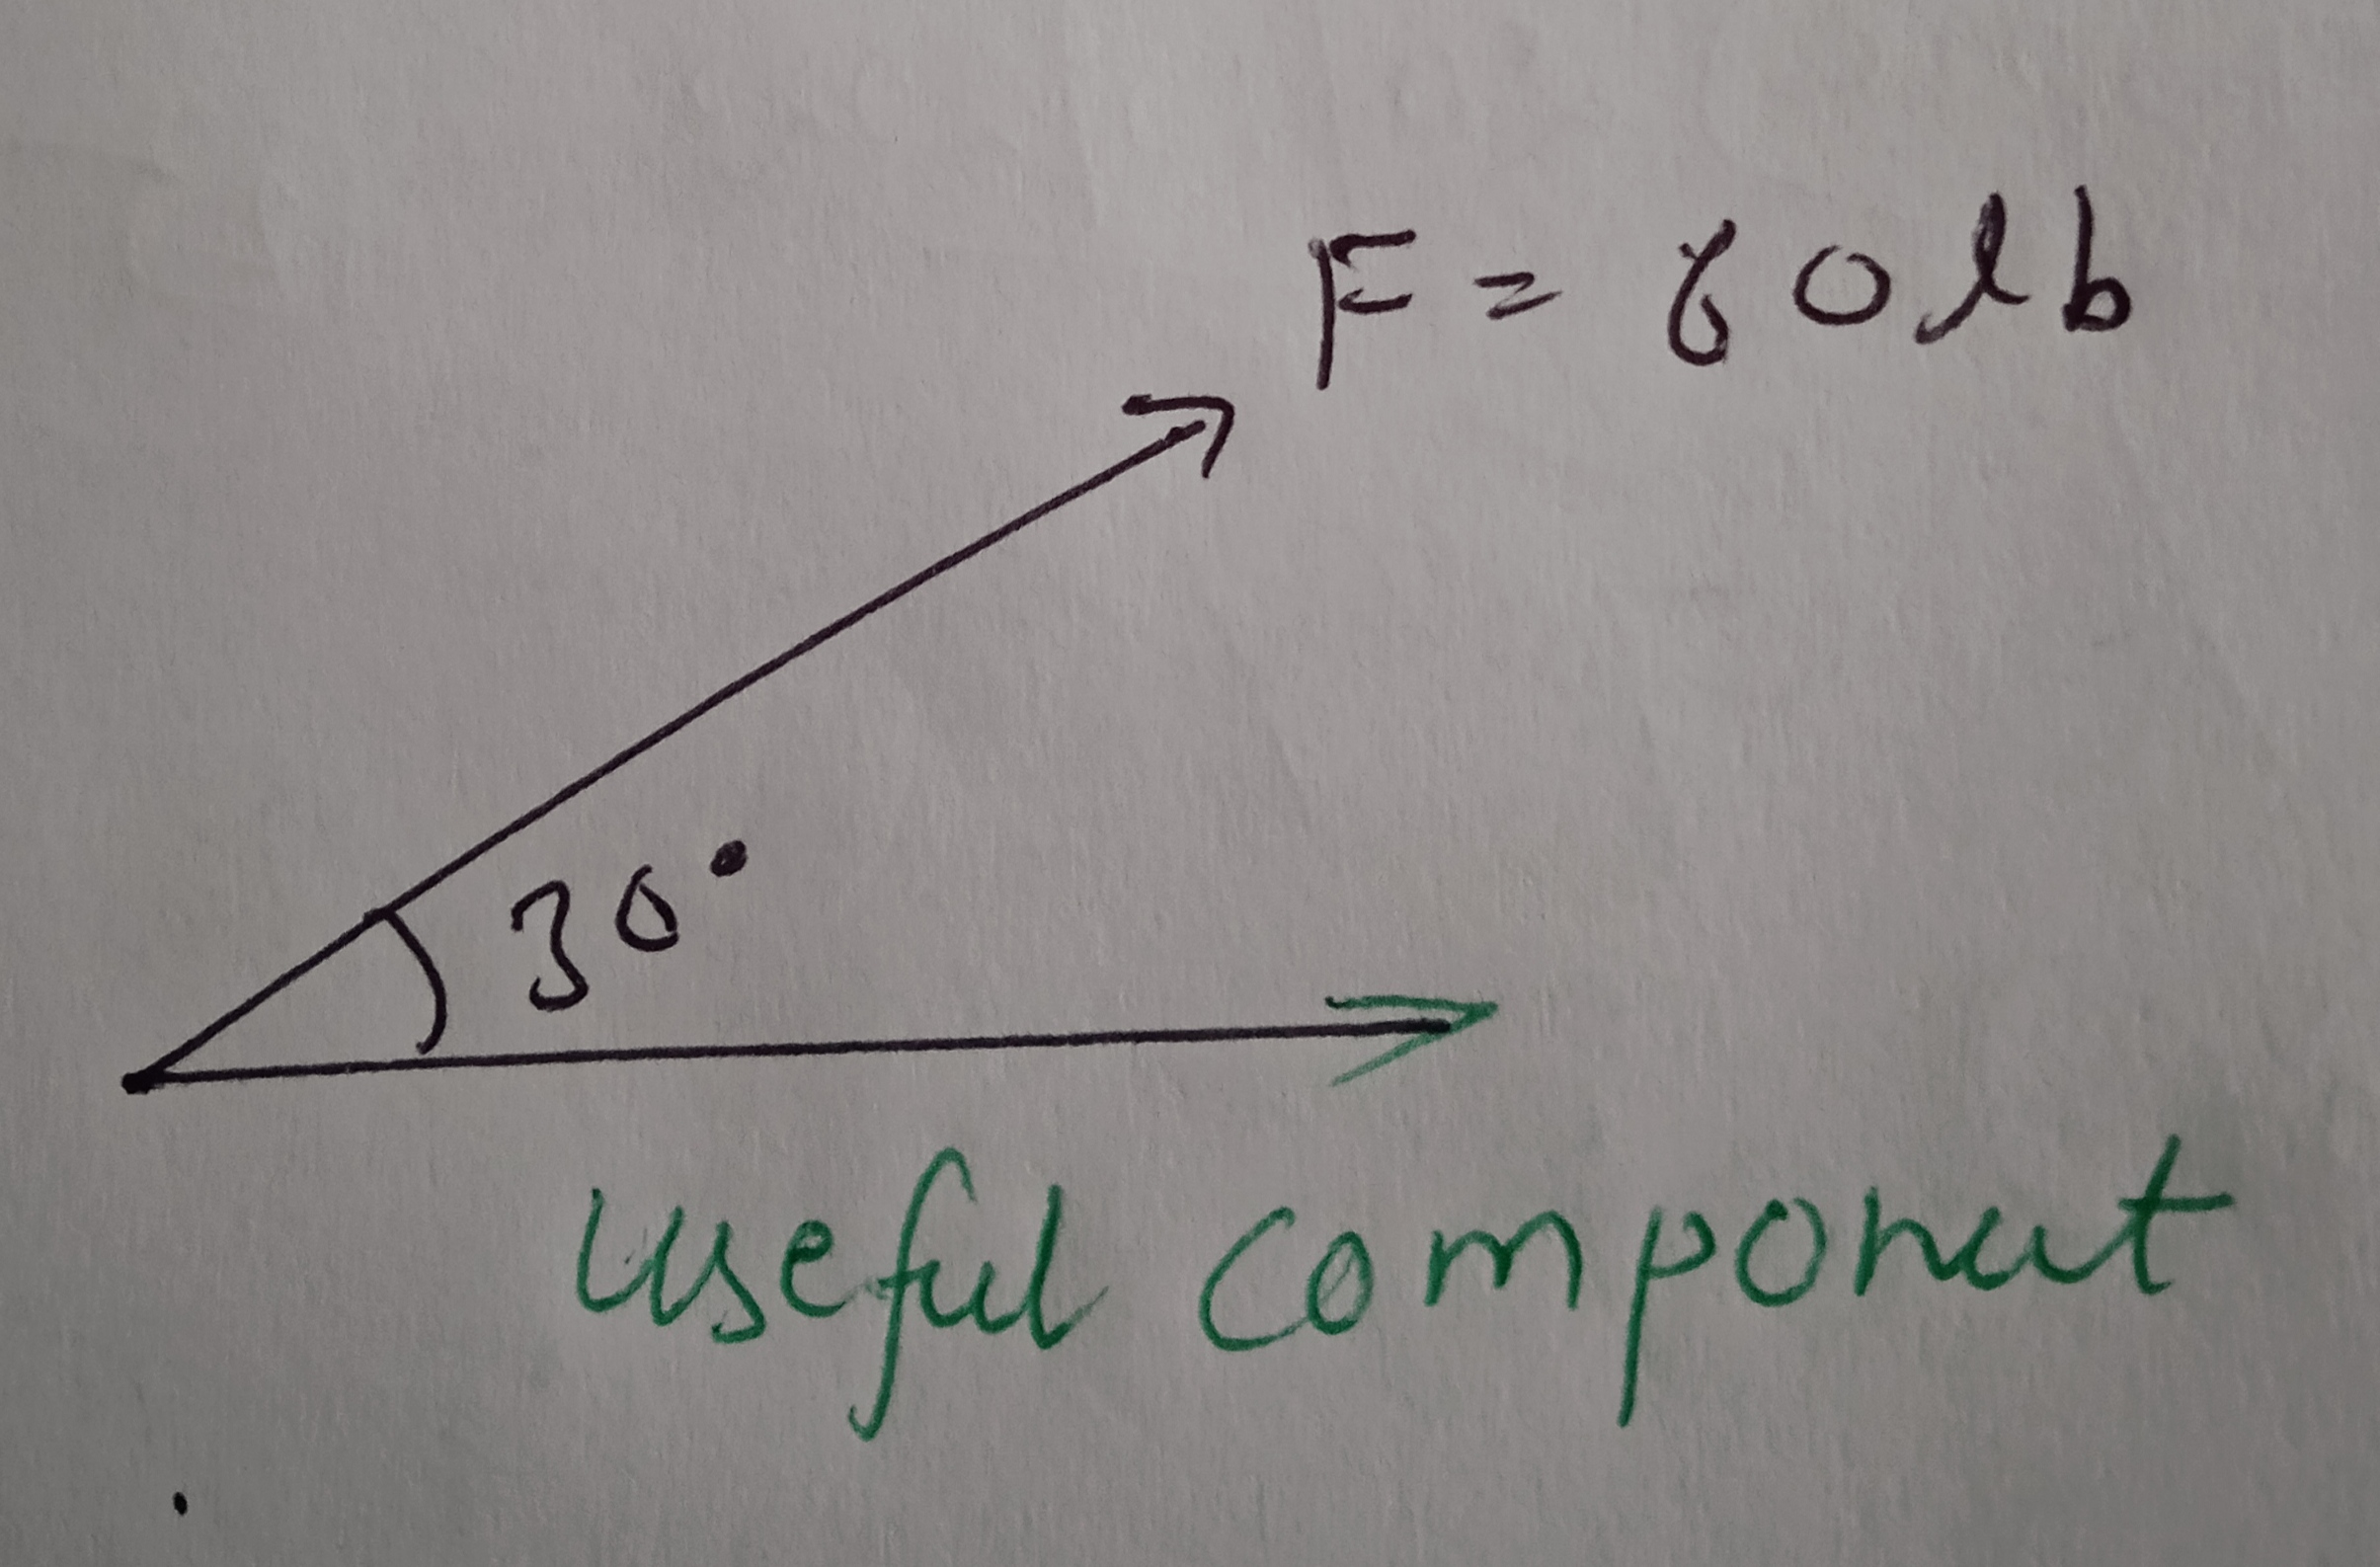 F = 80 lb
30°
useful component